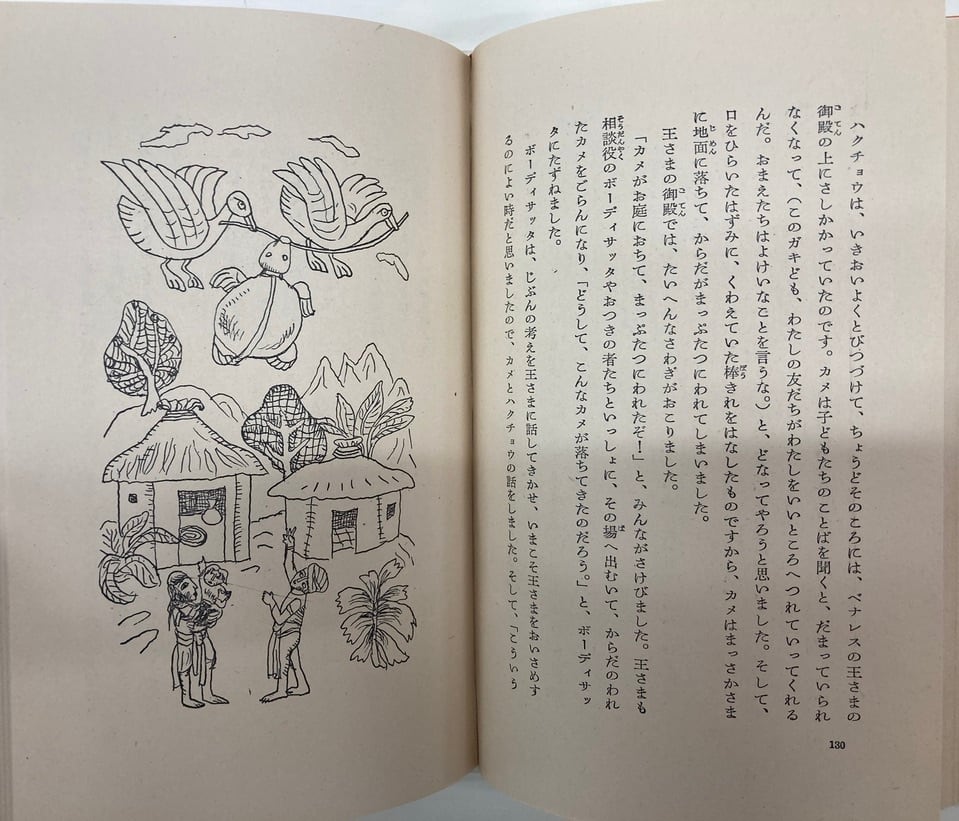 ハクチョウは、いきおいよくとびつづけて、ちょうどそのころには、ベナレスの王さまの
御殿の上にさしかかっていたのです。カメは子どもたちのことばを聞くと、だまっていられ
なくなって、（このガキども、わたしの友だちがわたしをいいところへつれていってくれる
んだ。おまえたちはよけいなことを言うな。）と、どなってやろうと思いました。そして、
口をひらいたはずみに、くわえていた棒きれをはなしたものですから、カメはまっさかさま
に地面に落ちて、からだがまっぷたつにわれてしまいました。
王さまの御殿では、たいへんなさわぎがおこりました。
「カメがお庭におちて、まっぷたつにわれたぞ！」と、みんながさけびました。王さまも
相談役のボーディサッタやおつきの者たちといっしょに、その場へ出むいて、からだのわれ
たカメをごらんになり、「どうして、こんなカメが落ちてきたのだろう。」と、ボーディサッ
タにたずねました。
ボーディサッタは、じぶんの考えを王さまに話してきかせ、いまこそ王さまをおいさめす
るのによい時だと思いましたので、カメとハクチョウの話をしました。そして、「こういう
130